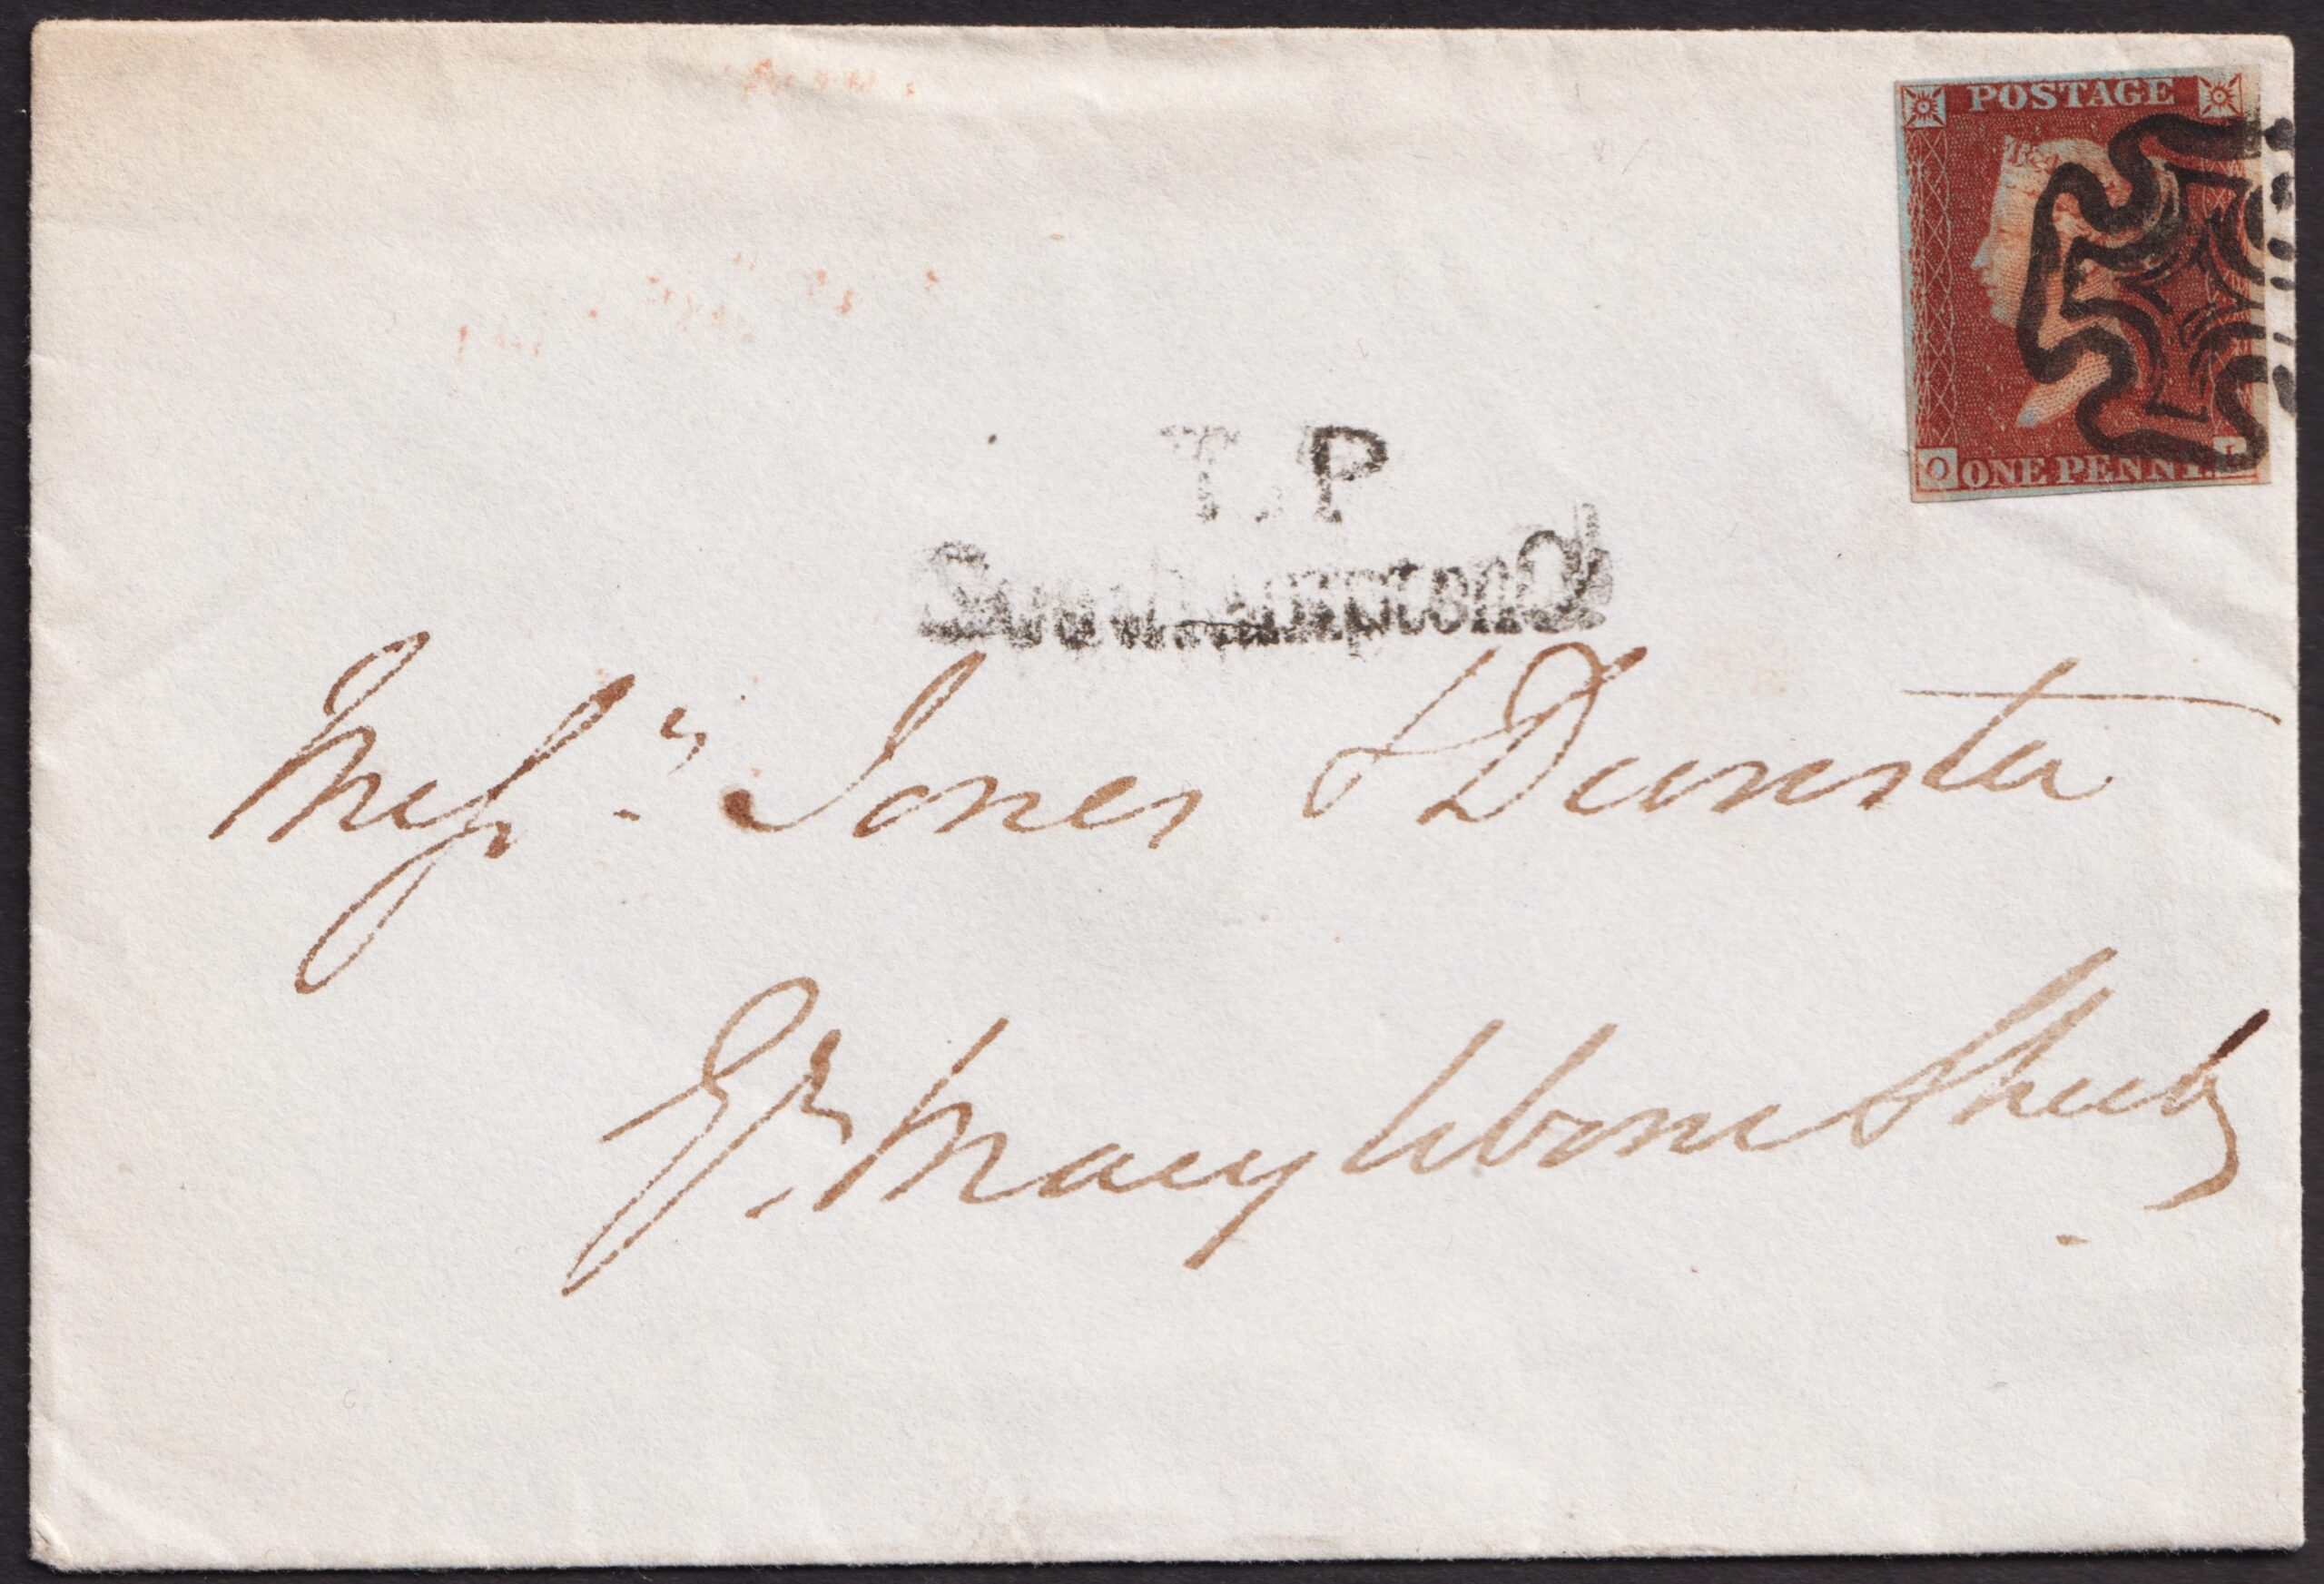 POSTAGE
O ONE PENNY.
T.P
Southampton
Messrs. Jones & Dunster
Gr. Marylebone Street